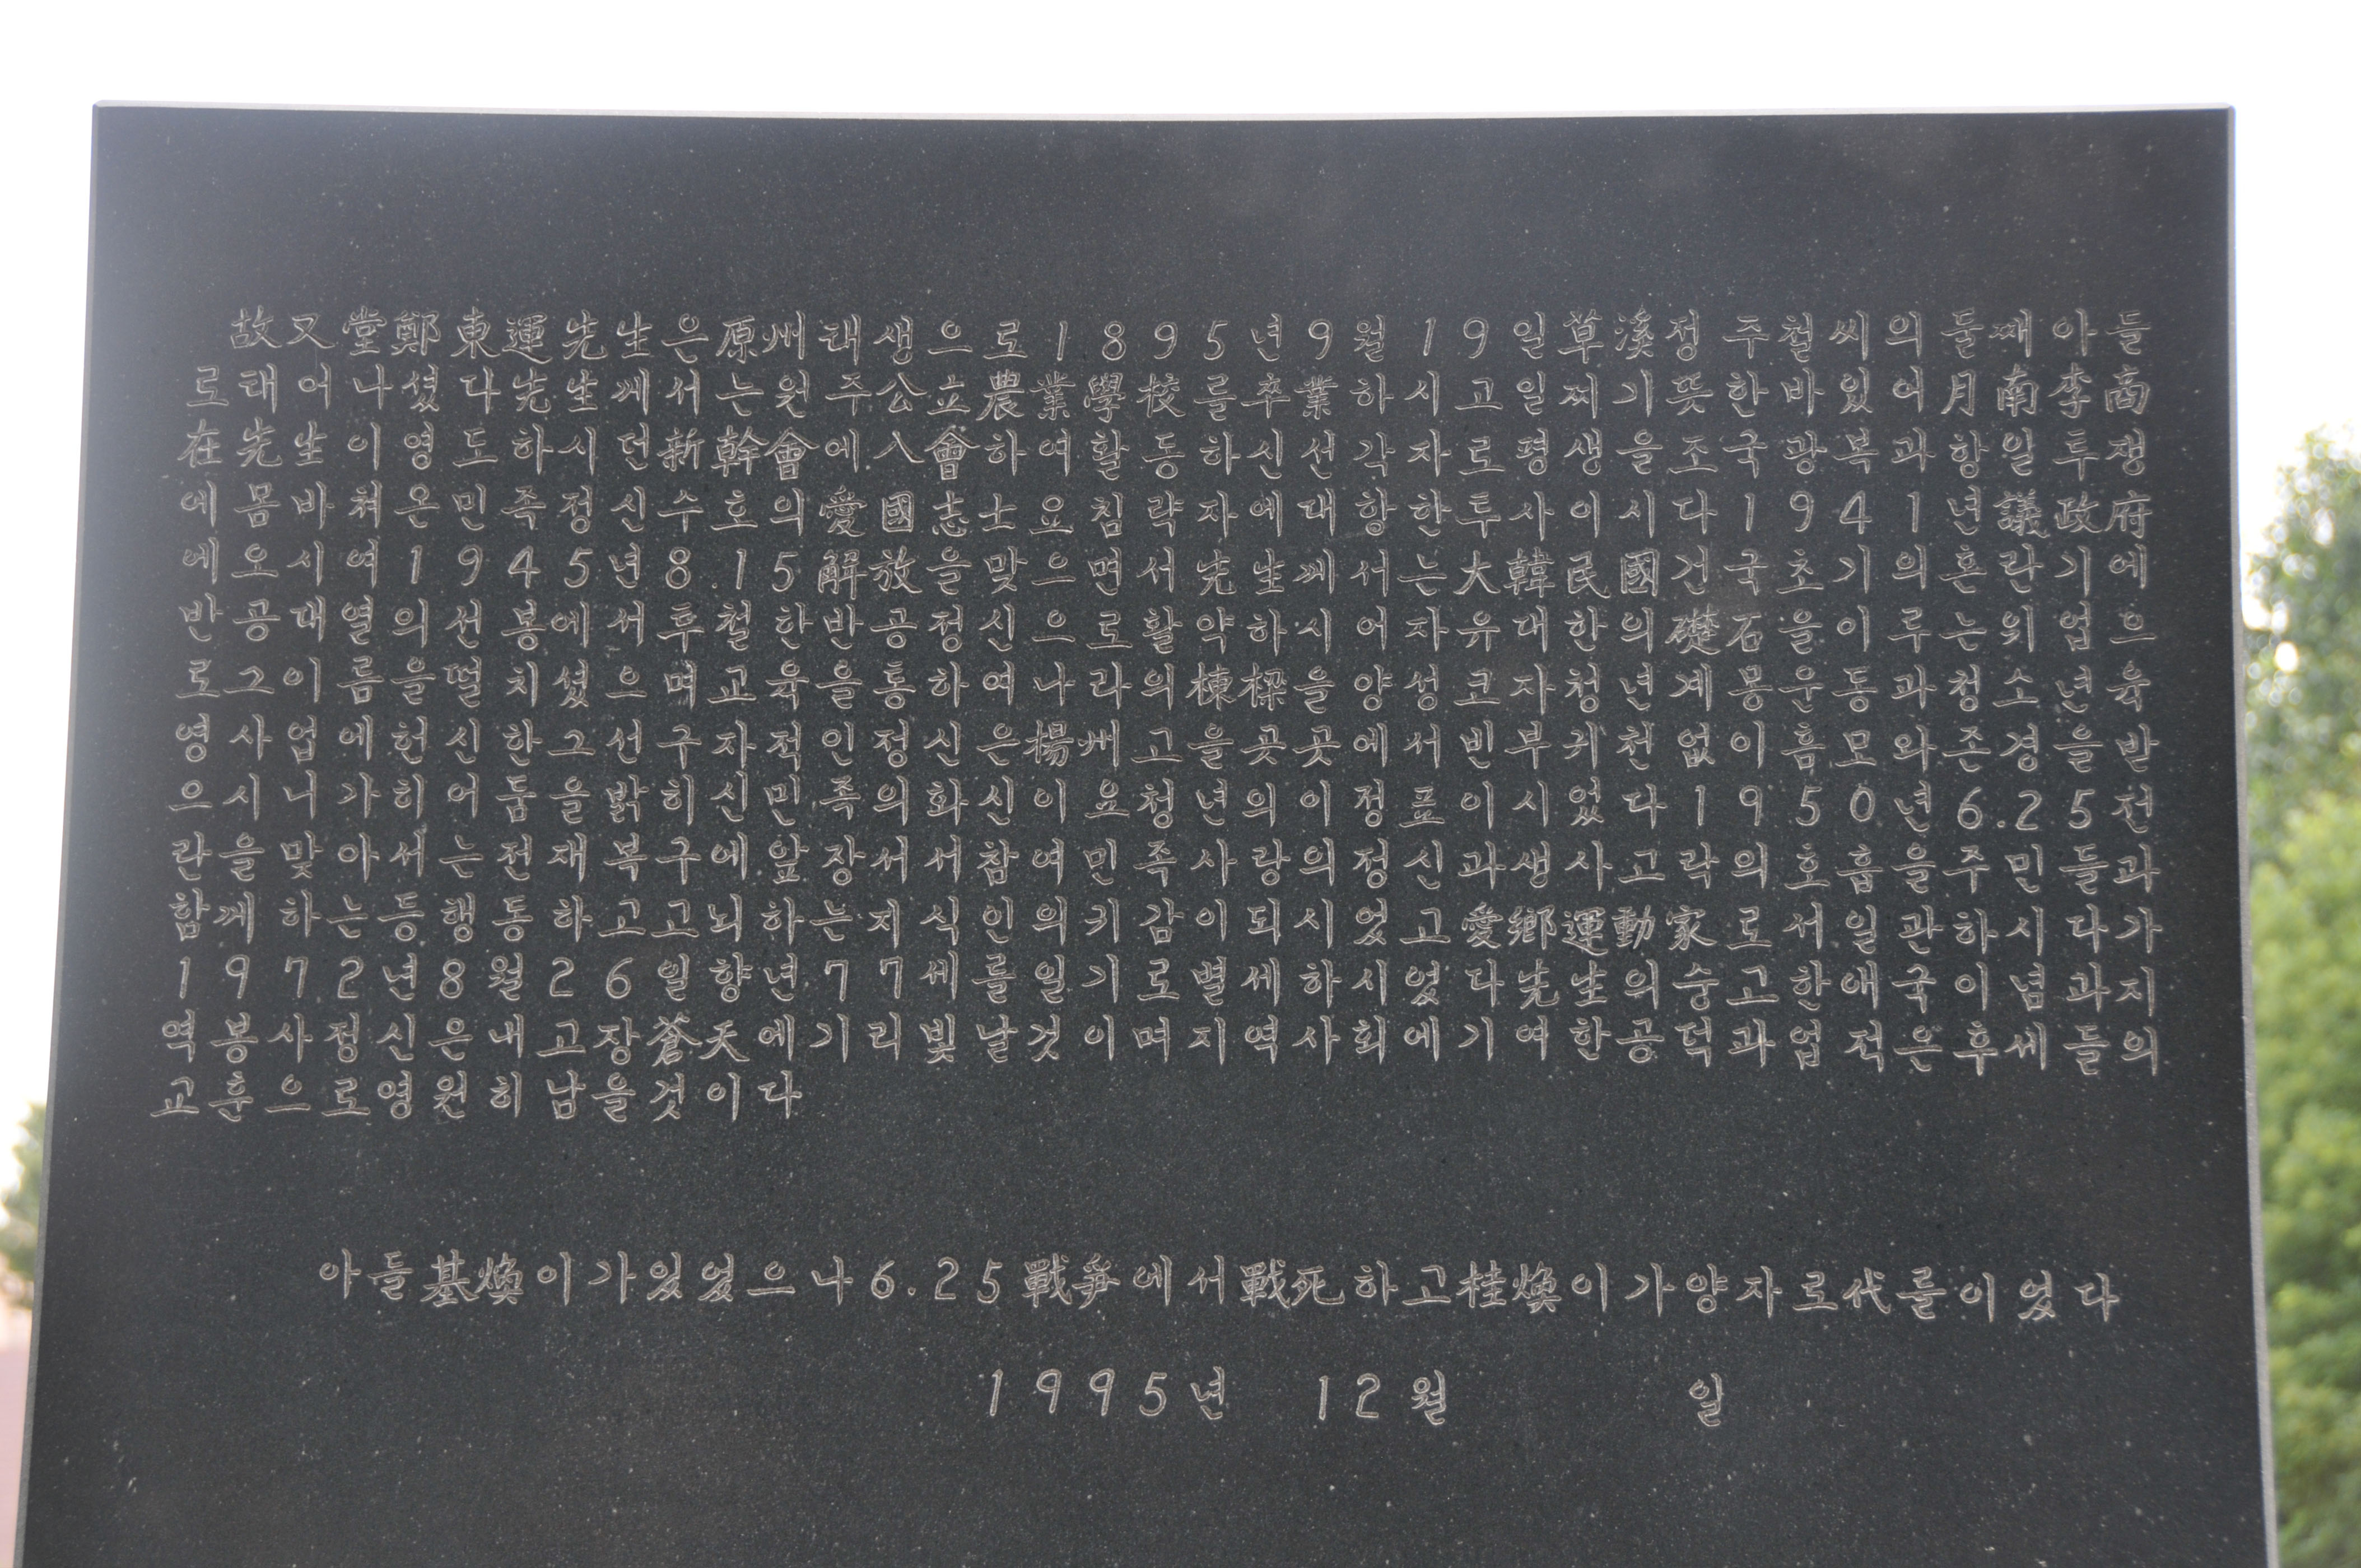 故又堂鄭東運先生은原州태생으로1895년9월19일草溪정주철씨의둘째아들
로태어나셨다先生께서는원주公立農業學校를卒業하시고일찌기뜻한바있어月南李商
在先生이영도하시던新幹會에入會하여활동하신선각자로평생을조국광복과항일투쟁
에몸바쳐온민족정신수호의愛國志士요침략자에대항한투사이시다1941년議政府
에오시여1945년8.15解放을맞으면서先生께서는大韓民國건국초기의혼란기에
반공대열의선봉에서투철한반공정신으로활약하시어자유대한의礎石을이루는위업으
로그이름을떨치셨으며교육을통하여나라의棟樑을양성코자청년계몽운동과청소년육
영사업에헌신한그선구자적인정신은楊州고을곳곳에서빈부귀천없이흠모와존경을받
으시니가히어둠을밝히신민족의화신이요청년의이정표이시었다1950년6.25전
란을맞아서는전재복구에앞장서서참여민족사랑의정신과생사고락의호흡을주민들과
함께하는등행동하고고뇌하는지식인의귀감이되시었고愛鄕運動家로서일관하시다가
1972년8월26일향년77세를일기로별세하시었다先生의숭고한애국이념과지
역봉사정신은내고장蒼天에기리빛날것이며지역사회에기여한공덕과업적은후세들의
교훈으로영원히남을것이다
아들基煥이가있었으나6.25戰爭에서戰死하고桂煥이가양자로代를이었다
1995년 12월 일